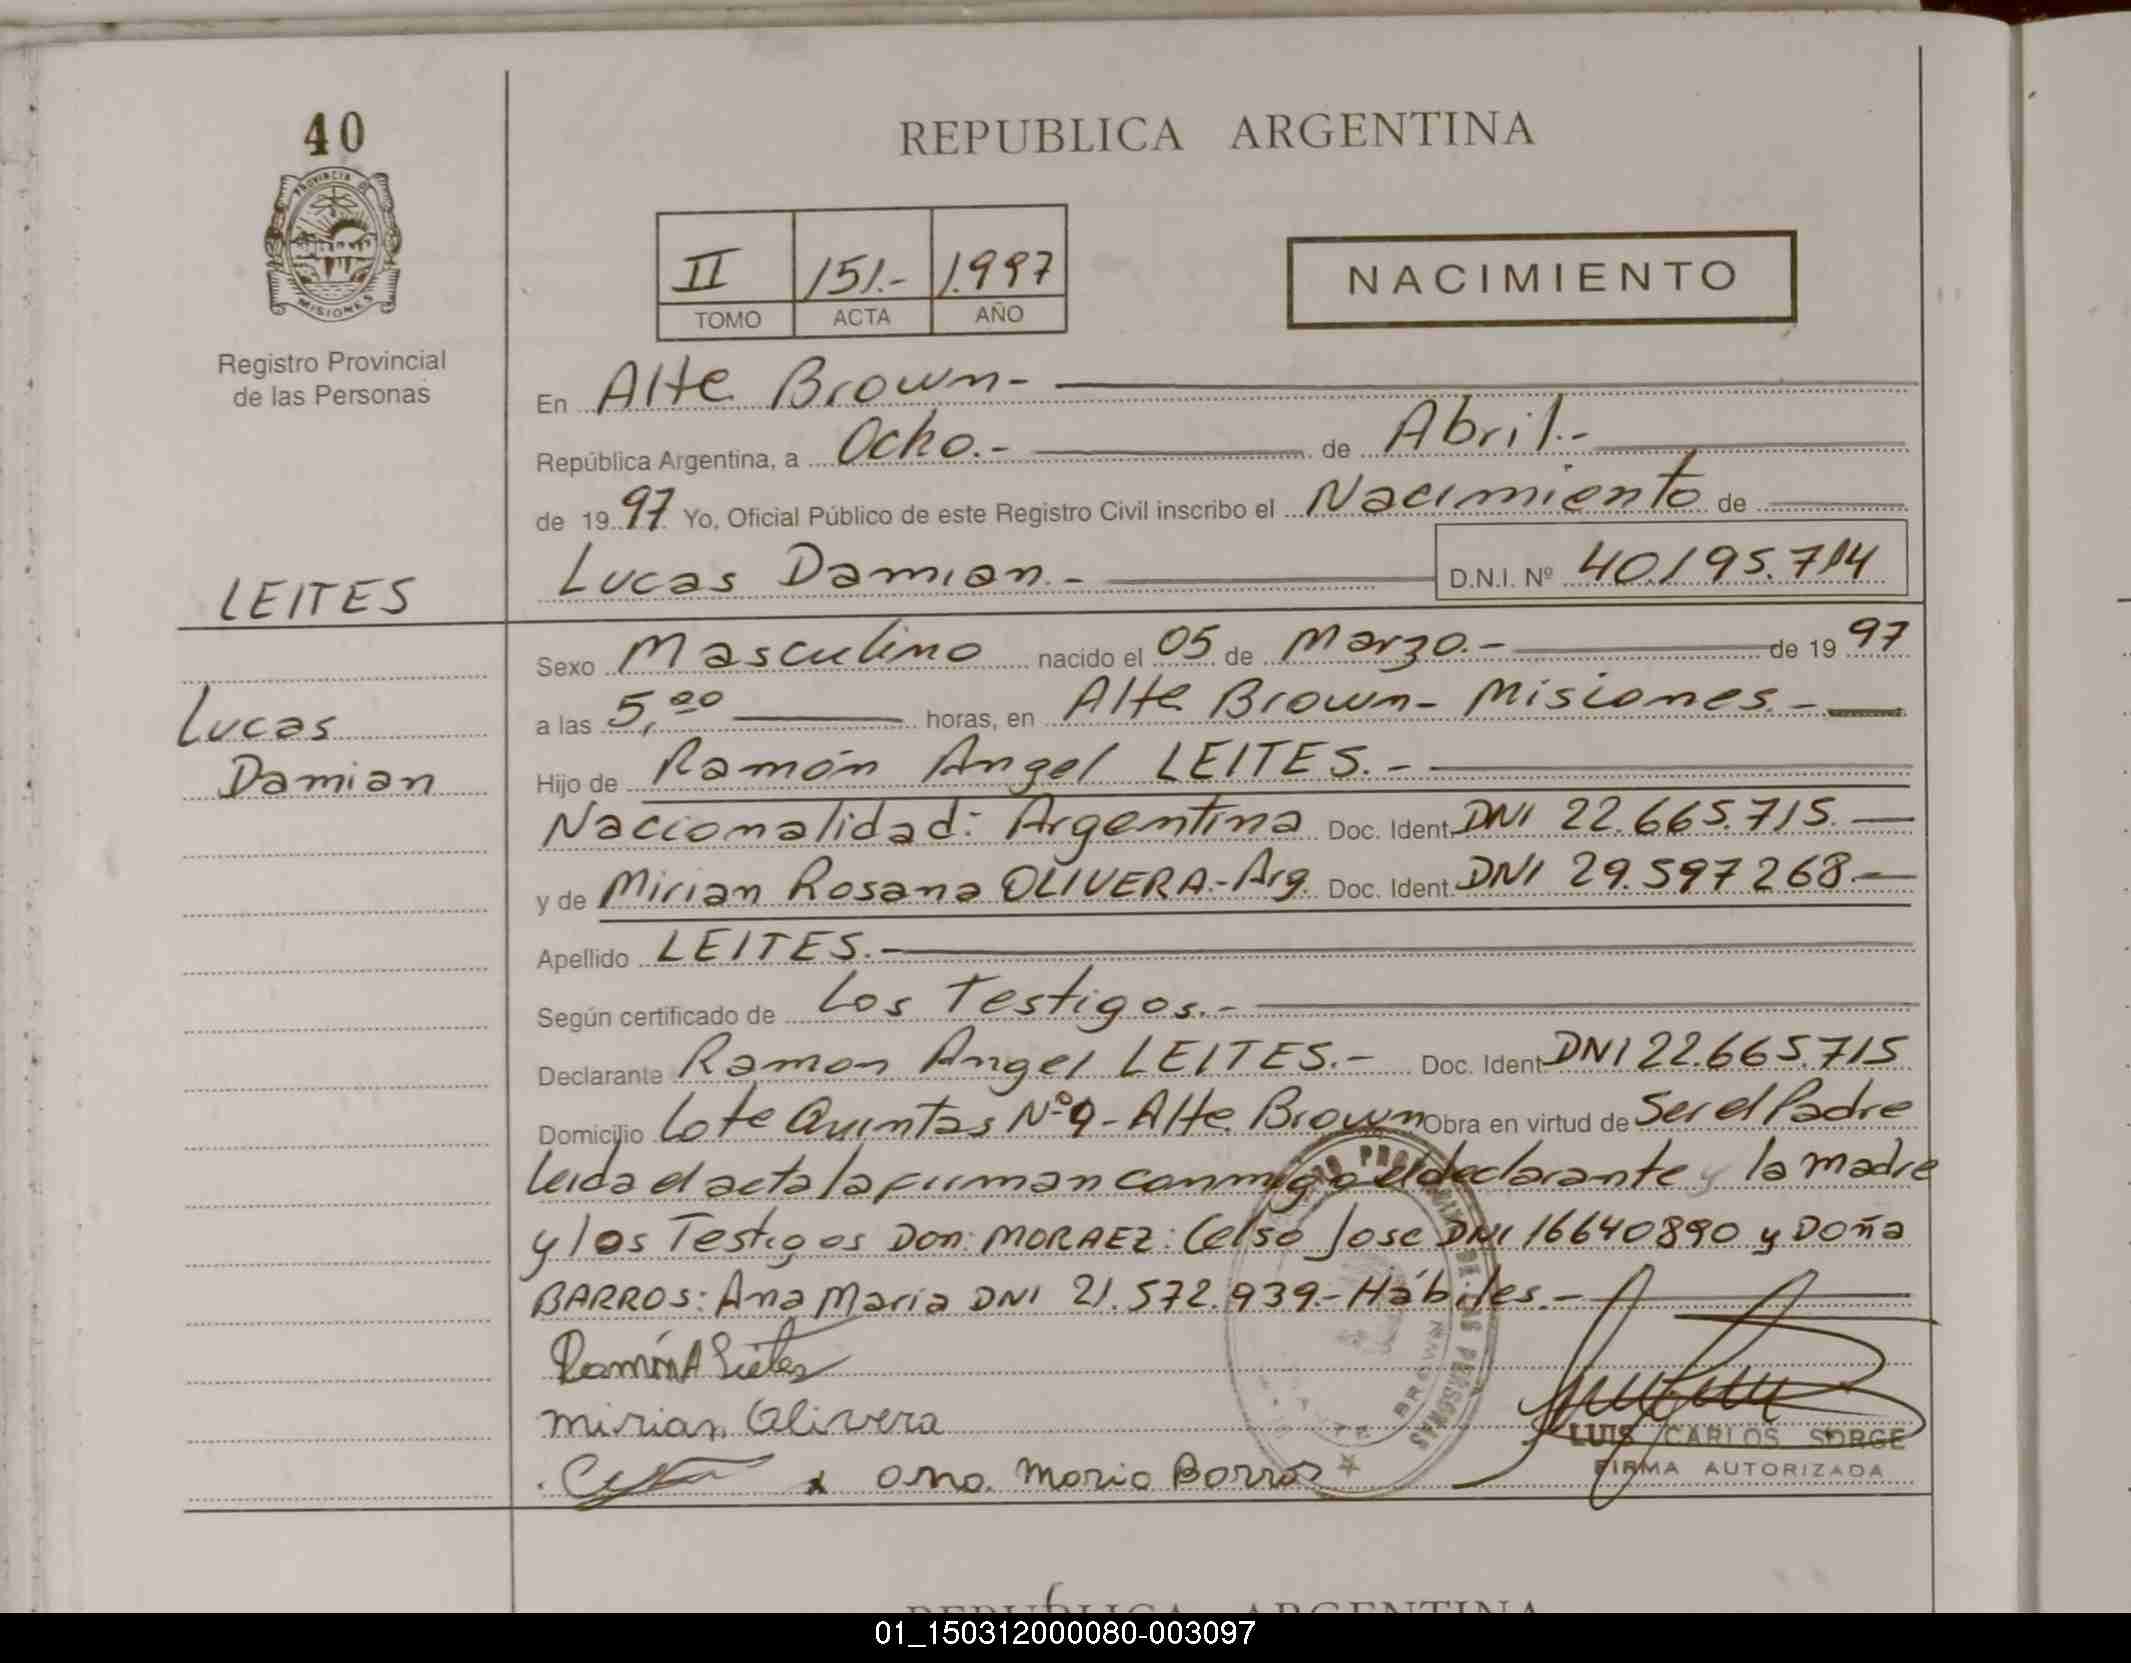 40
PROVINCIA DE
MISIONES
Registro Provincial
de las Personas
LEITES
Lucas
Damian
REPUBLICA ARGENTINA
II 151.- 1.997
TOMO ACTA AÑO
NACIMIENTO
En Alte Brown-
República Argentina, a Ocho.- de Abril.-
de 19 97 Yo, Oficial Público de este Registro Civil inscribo el Nacimiento de
Lucas Damian.- D.N.I. Nº 40.195.714
Sexo Masculino nacido el 05 de Marzo.- de 19 97
a las 5,00 horas, en Alte Brown- Misiones.-
Hijo de Ramón Angel LEITES.-
Nacionalidad: Argentina Doc. Ident. DNI 22.665.715.
y de Mirian Rosana OLIVERA.-Arg. Doc. Ident. DNI 29.597268.-
Apellido LEITES.
Según certificado de Los Testigos.-
Declarante Ramon Angel LEITES.- Doc. Ident DNI 22.665.715
Domicilio Lote Quintas Nº 9- Alte Brown Obra en virtud de Ser el Padre
Leida el acta la firman conmigo el declarante y la madre
y los Testigos Don: MORAEZ: Celso Jose DNI 16640890 y Doña
BARROS: Ana Maria DNI 21.572.939.- Hábiles.-
Ramón A Leites
Mirian Olivera
x Ana Maria Barros
LUIS CARLOS SORGE
FIRMA AUTORIZADA
DE LAS PERSONAS
BROWN
REPUBLICA ARGENTINA
01_150312000080-003097